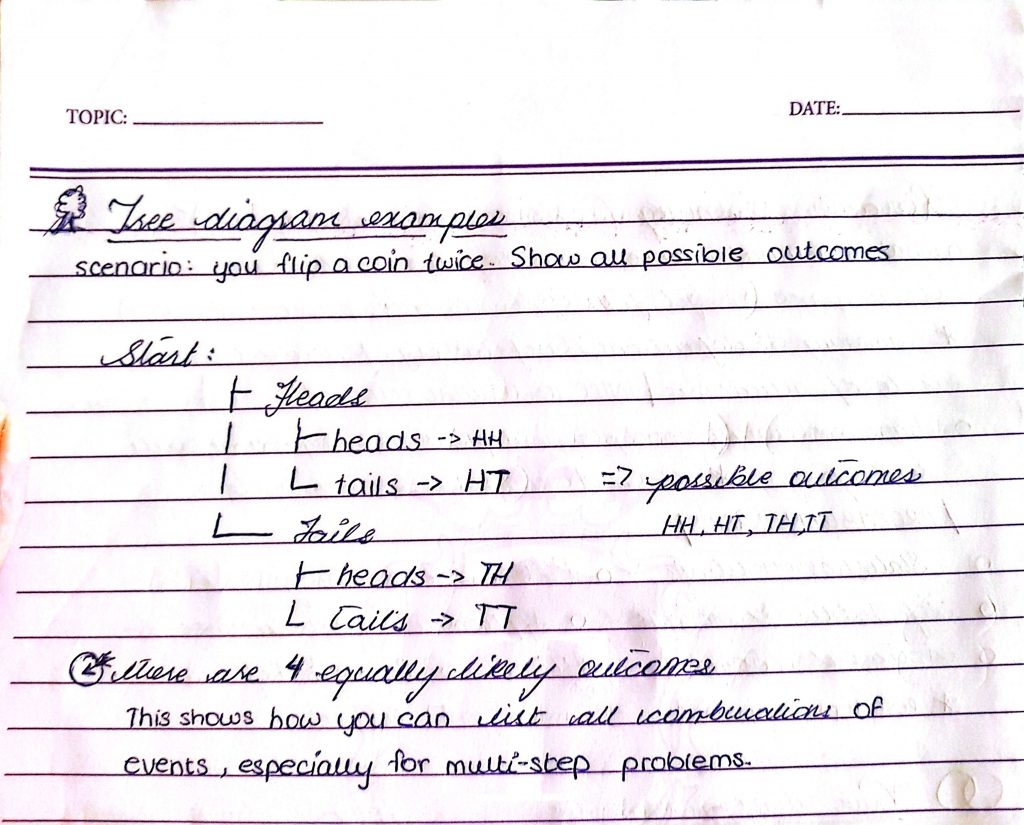 TOPIC:
DATE:
Tree diagram examples
scenario: you flip a coin twice. Show all possible outcomes
Start:
├ Heads
| ├ heads -> HH
| └ tails -> HT => possible outcomes
└── Tails HH, HT, TH, TT
├ heads -> TH
└ Tails -> TT
2* there are 4 equally likely outcomes
This shows how you can list all combinations of
events, especially for multi-step problems.